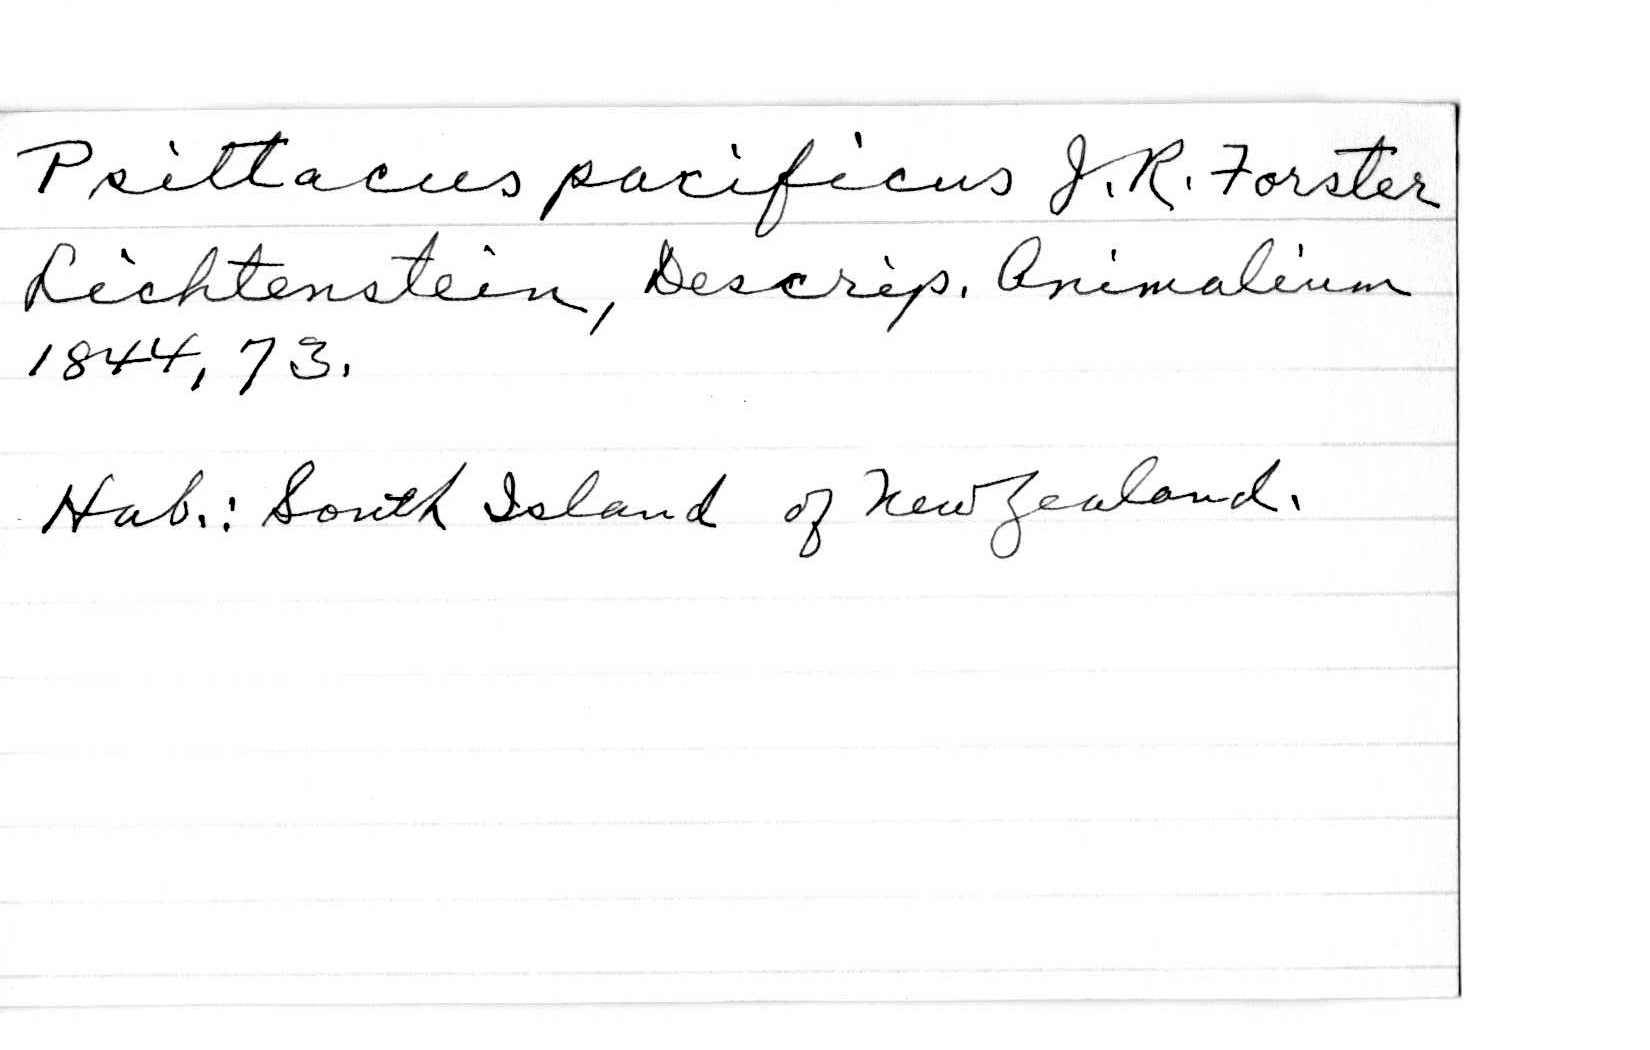 Psittacus pacificus J. R. Forster
Lichtenstein, Descrip. Animalium
1844, 73.
Hab.: South Island of New Zealand.